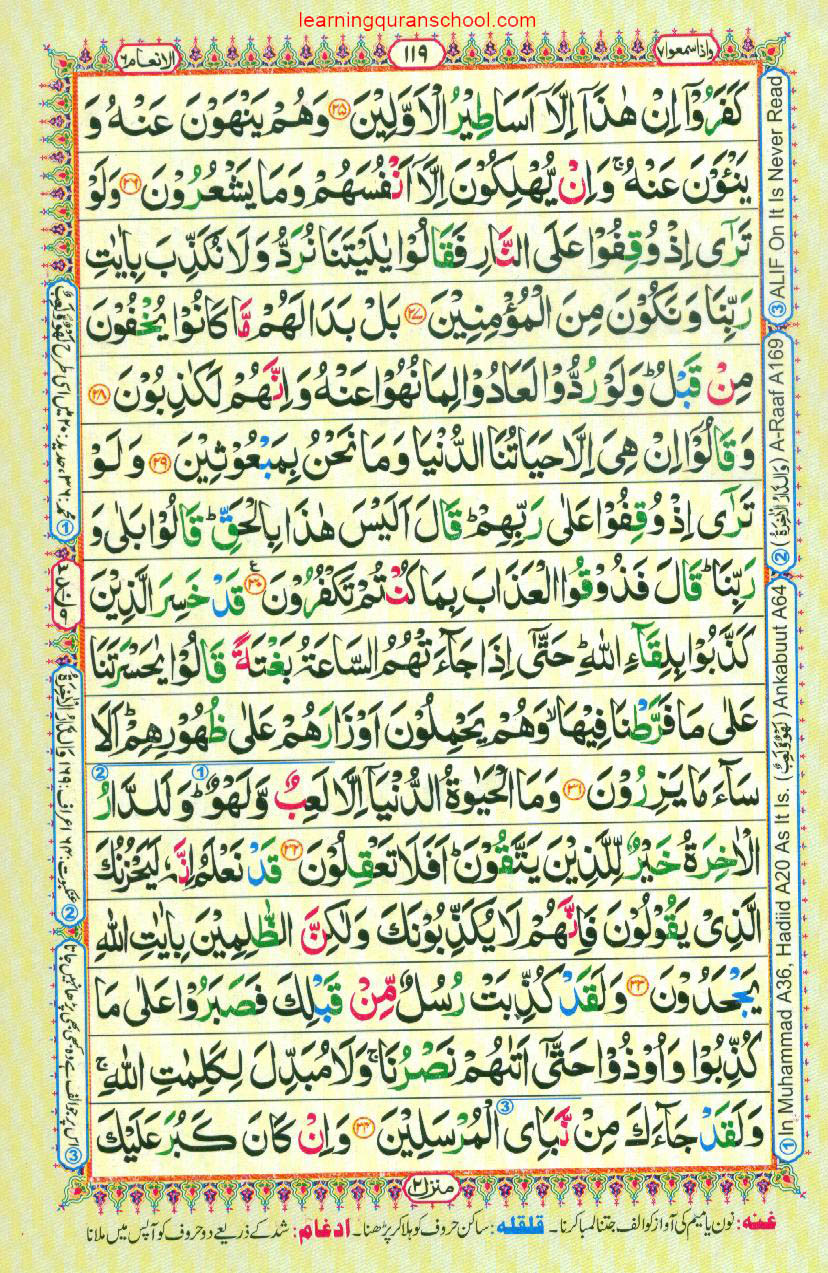 learningquranschool.com
واذا سمعوا ٧
١١٩
الانعام ٦
كَفَرُوْۤا اِنْ هٰذَاۤ اِلَّاۤ اَسَاطِيْرُ الْاَوَّلِيْنَ ﴿۲۵﴾ وَهُمْ يَنْهَوْنَ عَنْهُ وَ
يَنْـَٔوْنَ عَنْهُ ۚ وَاِنْ يُّهْلِكُوْنَ اِلَّاۤ اَنْفُسَهُمْ وَمَا يَشْعُرُوْنَ ﴿۲۶﴾ وَلَوْ
تَرٰۤى اِذْ وُقِفُوْا عَلَى النَّارِ فَقَالُوْا يٰلَيْتَنَا نُرَدُّ وَلَا نُكَذِّبَ بِاٰيٰتِ
رَبِّنَا وَنَكُوْنَ مِنَ الْمُؤْمِنِيْنَ ﴿۲۷﴾ بَلْ بَدَا لَهُمْ مَّا كَانُوْا يُخْفُوْنَ
مِنْ قَبْلُ ؕ وَلَوْ رُدُّوْا لَعَادُوْا لِمَا نُهُوْا عَنْهُ وَاِنَّهُمْ لَكٰذِبُوْنَ ﴿۲۸﴾
وَقَالُوْۤا اِنْ هِىَ اِلَّا حَيَاتُنَا الدُّنْيَا وَمَا نَحْنُ بِمَبْعُوْثِيْنَ ﴿۲۹﴾ وَلَوْ
تَرٰۤى اِذْ وُقِفُوْا عَلٰى رَبِّهِمْ ؕ قَالَ اَلَيْسَ هٰذَا بِالْحَقِّ ؕ قَالُوْا بَلٰى وَ
رَبِّنَا ؕ قَالَ فَذُوْقُوا الْعَذَابَ بِمَا كُنْتُمْ تَكْفُرُوْنَ ﴿۳۰﴾ ع قَدْ خَسِرَ الَّذِيْنَ
كَذَّبُوْا بِلِقَآءِ اللّٰهِ ؕ حَتّٰۤى اِذَا جَآءَتْهُمُ السَّاعَةُ بَغْتَةً قَالُوْا يٰحَسْرَتَنَا
عَلٰى مَا فَرَّطْنَا فِيْهَا ۙ وَهُمْ يَحْمِلُوْنَ اَوْزَارَهُمْ عَلٰى ظُهُوْرِهِمْ ؕ اَلَا
سَآءَ مَا يَزِرُوْنَ ﴿۳۱﴾ وَمَا الْحَيٰوةُ الدُّنْيَاۤ اِلَّا لَعِبٌ وَّلَهْوٌ ؕ ① وَلَلدَّارُ ②
الْاٰخِرَةُ خَيْرٌ لِّلَّذِيْنَ يَتَّقُوْنَ ؕ اَفَلَا تَعْقِلُوْنَ ﴿۳۲﴾ قَدْ نَعْلَمُ اِنَّهٗ لَيَحْزُنُكَ
الَّذِىْ يَقُوْلُوْنَ فَاِنَّهُمْ لَا يُكَذِّبُوْنَكَ وَلٰكِنَّ الظّٰلِمِيْنَ بِاٰيٰتِ اللّٰهِ
يَجْحَدُوْنَ ﴿۳۳﴾ وَلَقَدْ كُذِّبَتْ رُسُلٌ مِّنْ قَبْلِكَ فَصَبَرُوْا عَلٰى مَا
كُذِّبُوْا وَاُوْذُوْا حَتّٰۤى اَتٰىهُمْ نَصْرُنَا ۚ وَلَا مُبَدِّلَ لِكَلِمٰتِ اللّٰهِ ۚ
وَلَقَدْ جَآءَكَ مِنْ نَّبَاِى ③ الْمُرْسَلِيْنَ ﴿۳۴﴾ وَاِنْ كَانَ كَبُرَ عَلَيْكَ
① In Muhammad A36, Hadiid A20 As It Is. (لَهْوٌ وَّلَعِبٌ) Ankabuut A64
② (وَالدَّارُ الْاٰخِرَةُ) A-Raaf A169
③ ALIF On It Is Never Read
② عنکبوت: ۶۴، اعراف: ۱۶۹ وَالدَّارُ الْاٰخِرَةُ
منزل ۲
غنہ: نون یا میم کی آواز کو الف جتنا لمبا کرنا۔ قلقلہ: ساکن حروف کو ہلا کر پڑھنا۔ ادغام: شد کے ذریعے دو حروف کو آپس میں ملانا